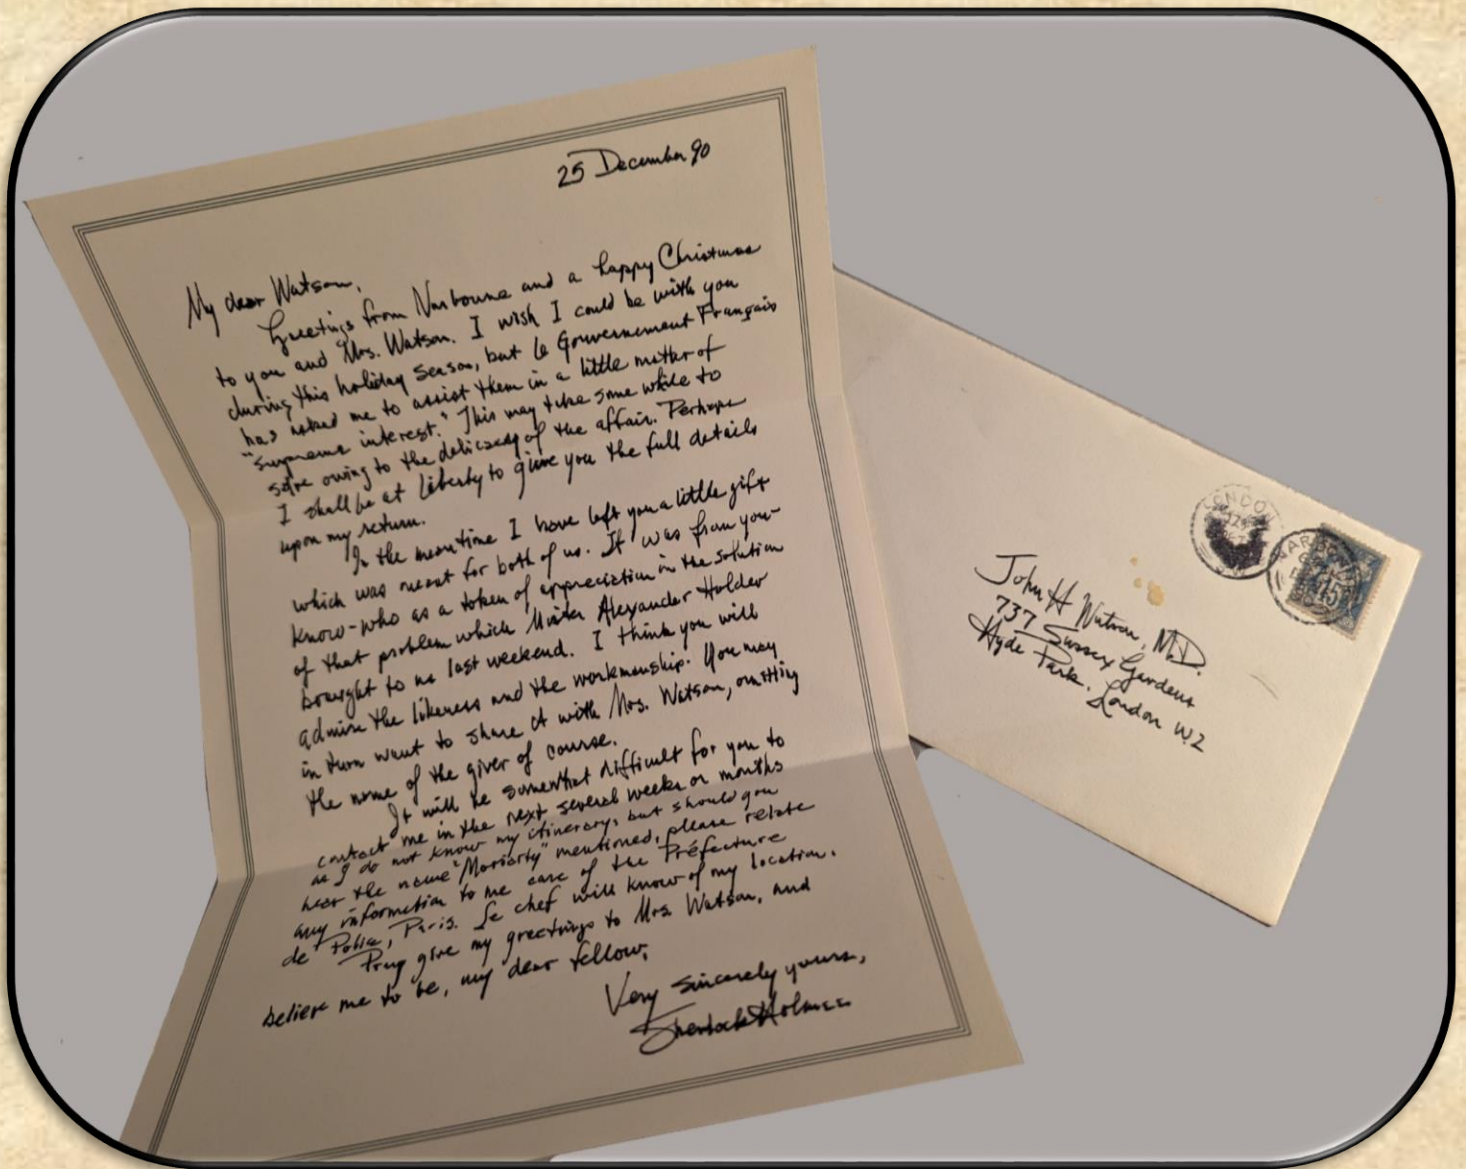 25 December 90
My dear Watson,
Greetings from Narbonne and a happy Christmas
to you and Mrs. Watson. I wish I could be with you
during this holiday season, but le Gouvernement Français
has asked me to assist them in a little matter of
"supreme interest." This may take some while to
solve owing to the delicacy of the affair. Perhaps
I shall be at liberty to give you the full details
upon my return.
In the meantime I have left you a little gift
which was meant for both of us. It was from you-
know-who as a token of appreciation in the solution
of that problem which Mister Alexander Holder
brought to us last weekend. I think you will
admire the likeness and the workmanship. You may
in turn want to share it with Mrs. Watson, omitting
the name of the giver of course.
It will be somewhat difficult for you to
contact me in the next several weeks or months
as I do not know my itinerary, but should you
hear the name "Moriarty" mentioned, please relate
any information to me care of the Préfecture
de Police, Paris. Le chef will know of my location.
Pray give my greetings to Mrs. Watson, and
believe me to be, my dear fellow,
Very sincerely yours,
Sherlock Holmes
LONDON
15
John H Watson, M.D.
737 Sussex Gardens
Hyde Park, London W.2